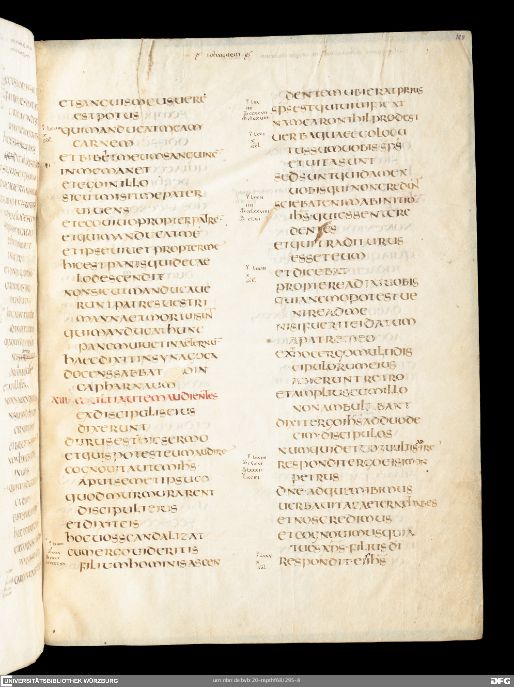 ETSANGUISMEUSUERE
ESTPOTUS
QUIMANDUCATMEAM
CARNEM
ETBIBETMEUMSANGUINE
INMEMANET
ETEGOINILLO
SICUTMISITMEPATER
UIUENS
ETEGOUIUOPROPTERPATRE
ETQUIMANDUCATME
ETIPSEUIUETPROPTERME
HICESTPANISQUIDECAE
LODESCENDIT
NONSICUTMANDUCAUE
RUNTPATRESUESTRI
MANNAETMORTUISUN
QUIMANDUCATHUNC
PANEMUIUETINAETERNU
HAECDIXITINSYNAGOGA
DOCENSSABBATO IN
CAPHARNAUM
MULTIAUTEMAUDIENTES
EXDISCIPULISEIUS
DIXERUNT
DURUSESTHICSERMO
ETQUISPOTESTEUMAUDIRE
COGNOUITAUTEMIHS
APUTSEMETIPSUM
QUODMURMURARENT
DISCIPULIEIUS
ETDIXITEIS
HOCUOSSCANDALIZAT
CUMERGOUIDERITIS
FILIUMHOMINISASCEN
DENTEMUBIERATPRIUS
SPSESTQUIUIUIFICAT
NAMCARONIHILPRODEST
UERBAQUAEEGOLOCU
TUSSUMUOBISSPS
ETUITASUNT
SEDSUNTQUIDAMEX
UOBISQUINONCREDUN
SCIEBATENIMABINITIO
IHSQUIESSENTCRE
DENTES
ETQUISTRADITURUS
ESSETEUM
ETDICEBAT
PROPTEREADIXIUOBIS
QUIANEMOPOTESTUE
NIREADME
NISIFUERITEIDATUM
APATREMEO
EXHOCERGOMULTIDIS
CIPULORUMEIUS
ABIERUNTRETRO
ETIAMNONCUMILLO
NONAMBULABANT
DIXITERGOIHSADDUODE
CIM DISCIPULOS
NUMQUIDETUOSUULTISIRE
RESPONDITERGOEISIMON
PETRUS
DNEADQUEMIBIMUS
UERBAUITAEAETERNAEHABES
ETNOSCREDIMUS
ETCOGNOUIMUSQUIA
TUESXPS FILIUSDI
RESPONDIT EISIHS
UNIVERSITÄTSBIBLIOTHEK WÜRZBURG
urn:nbn:de:bvb:20-mpthf68/295-8
DFG